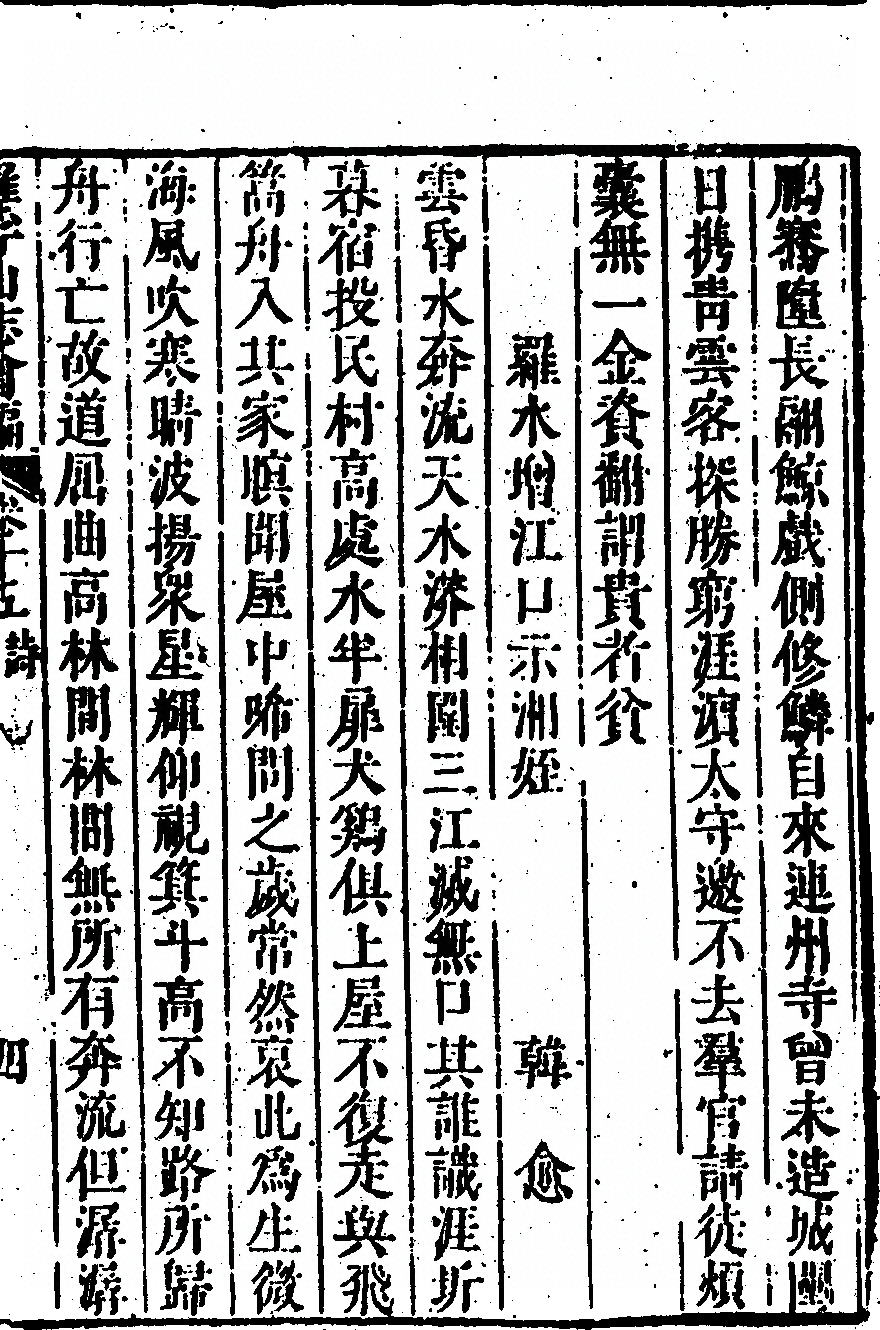 鵬騫墮長翮鯨戲側修鱗自來連州寺曾未造城闉
日攜青雲客探勝窮涯濱太守邀不去羣官請徒煩
囊無一金資翻謂貴者貧
羅水增江口示湘姪　韓愈
雲昏水奔流天水漭相圍三江滅無口其誰識涯圻
暮宿投民村高處水半扉犬鷄俱上屋不復走與飛
篙舟入其家暝聞屋中唏問之歲常然哀此爲生微
海風吹寒晴波揚衆星輝仰視箕斗高不知路所歸
舟行亡故道屈曲高林間林間無所有奔流但潺潺
羅浮山志會編　卷十五　詩　四